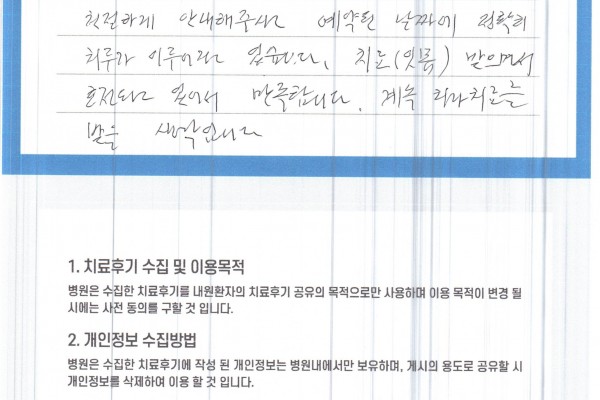 친절하게 안내해주시고 예약된 날짜에 정확히
치료가 이루어지고 있습니다. 치료(잇몸) 받으면서
호전되고 있어서 만족합니다. 계속 치과치료를
받을 생각입니다
1. 치료후기 수집 및 이용목적
병원은 수집한 치료후기를 내원환자의 치료후기 공유의 목적으로만 사용하며 이용 목적이 변경 될
시에는 사전 동의를 구할 것 입니다.
2. 개인정보 수집방법
병원은 수집한 치료후기에 작성 된 개인정보는 병원내에서만 보유하며, 게시의 용도로 공유할 시
개인정보를 삭제하여 이용 할 것 입니다.